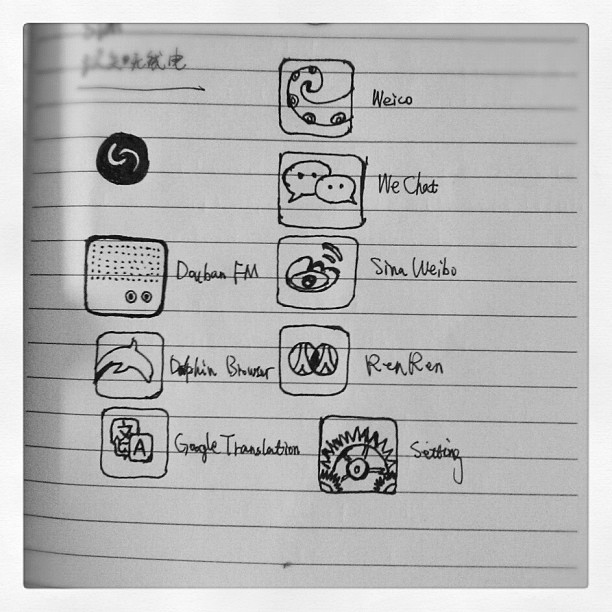 Weico
We Chat
Douban FM
Sina Weibo
Dolphin Browser
RenRen
文
A
Google Translation
Setting